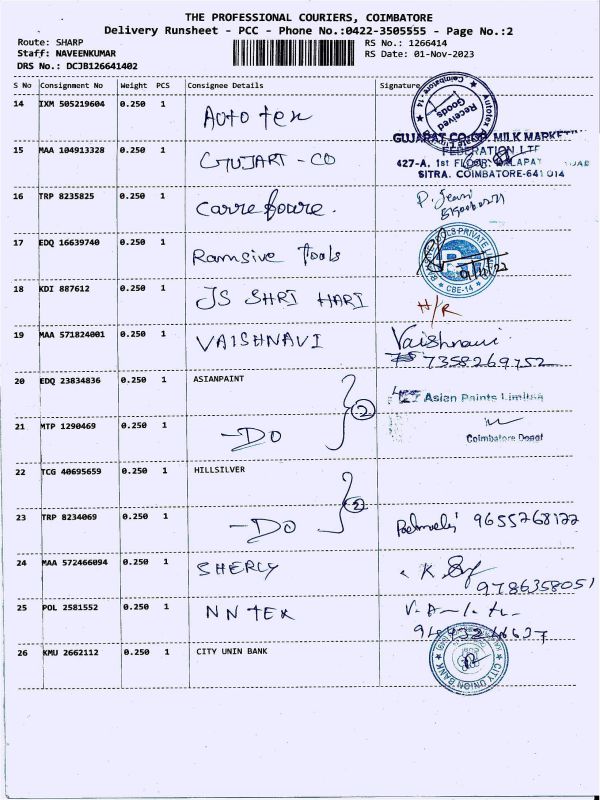 THE PROFESSIONAL COURIERS, COIMBATORE
Delivery Runsheet - PCC - Phone No.:0422-3505555 - Page No.:2
Route: SHARP RS No.: 1266414
Staff: NAVEENKUMAR RS Date: 01-Nov-2023
DRS No.: DCJB126641402
S No Consignment No Weight PCS Consignee Details Signature
14 IXM 505219604 0.250 1 Auto tex Received Goods Coimbatore-14 Autotex
15 MAA 104913328 0.250 1 GUJART - CO
GUJARAT CO. MILK MARKET
FEDERATION LTD
427-A, 1st FLOOR,
SITRA. COIMBATORE-641 014
16 TRP 8235825 0.250 1 Carrefoure. P.
17 EDQ 16639740 0.250 1 Ramsive Tools PRIVATE CBE-14
18 KDI 887612 0.250 1 JS SHRI HARI H/R
19 MAA 571824001 0.250 1 VAISHNAVI Vaishnavi
7358269752
20 EDQ 23834836 0.250 1 ASIANPAINT Asian Paints Limited
21 MTP 1290469 0.250 1 -DO 2 Coimbatore Depot
22 TCG 40695659 0.250 1 HILLSILVER
23 TRP 8234069 0.250 1 -DO 2 9655768122
24 MAA 572466094 0.250 1 SHERLY K.
9786358051
25 POL 2581552 0.250 1 NN TEX
26 KMU 2662112 0.250 1 CITY UNIN BANK CITY UNION BANK